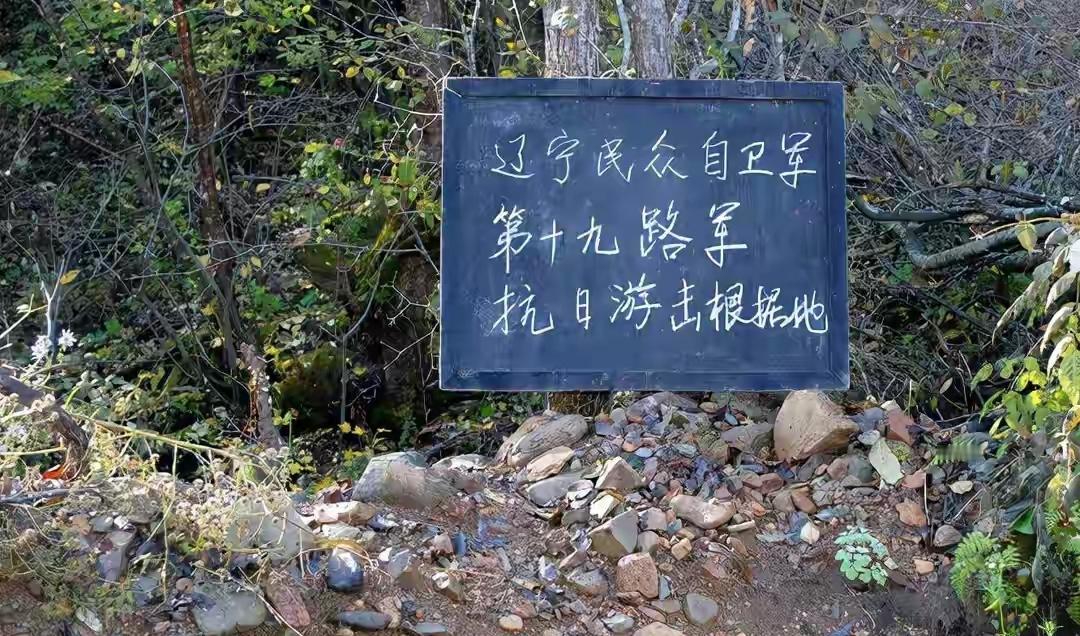 辽宁民众自卫军
第十九路军
抗日游击根据地